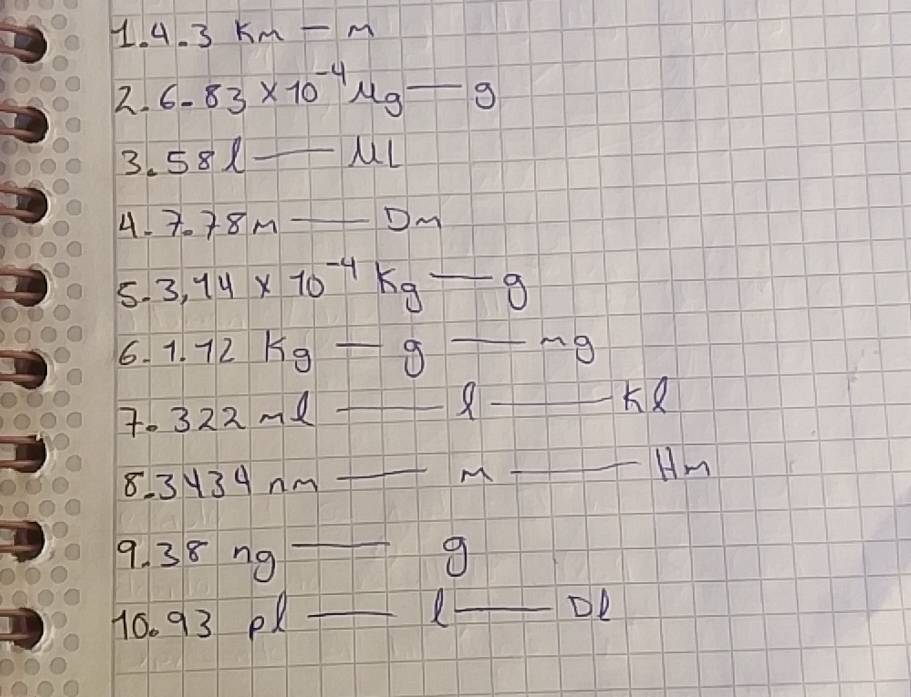 1.4.3 Km — m
2.6.83 × 10⁻⁴ μg — g
3.58 l — μL
4.7.78 m — Dm
5.3,14 × 10⁻⁴ Kg — g
6.1.12 Kg — g — mg
7.322 ml — l — Kl
8.3434 nm — m — Hm
9.38 ng — g
10.93 pl — l — Dl